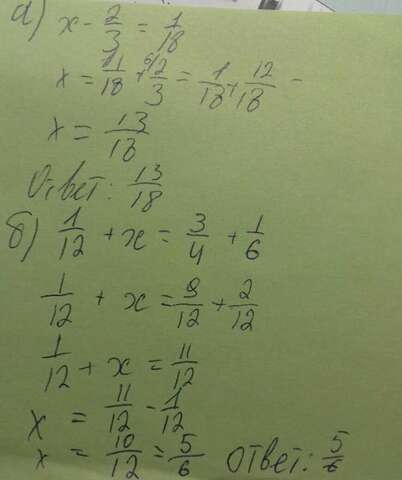 а) x - 2/3 = 1/18
x = 1/18 + 2/3 = 1/18 + 12/18 =
x = 13/18
Ответ: 13/18
б) 1/12 + x = 3/4 + 1/6
1/12 + x = 9/12 + 2/12
1/12 + x = 11/12
x = 11/12 - 1/12
x = 10/12 = 5/6 Ответ: 5/6